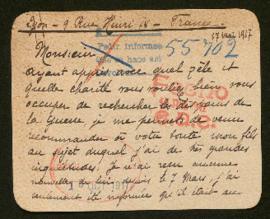 Dijon - 9 Rue Henri IV - France -
17 mai 1917
Monsieur
55702
ayant appris avec quel zèle et
quelle charité vous voulez bien vous
occuper de rechercher les disparus de
la Guerre, je me permets de venir
recommander à votre bonté mon fils
au sujet duquel j'ai de très grandes
inquiétudes. Je n'ai reçu aucune
nouvelle de lui depuis le 7 mars, j'ai
été informée qu'il était au